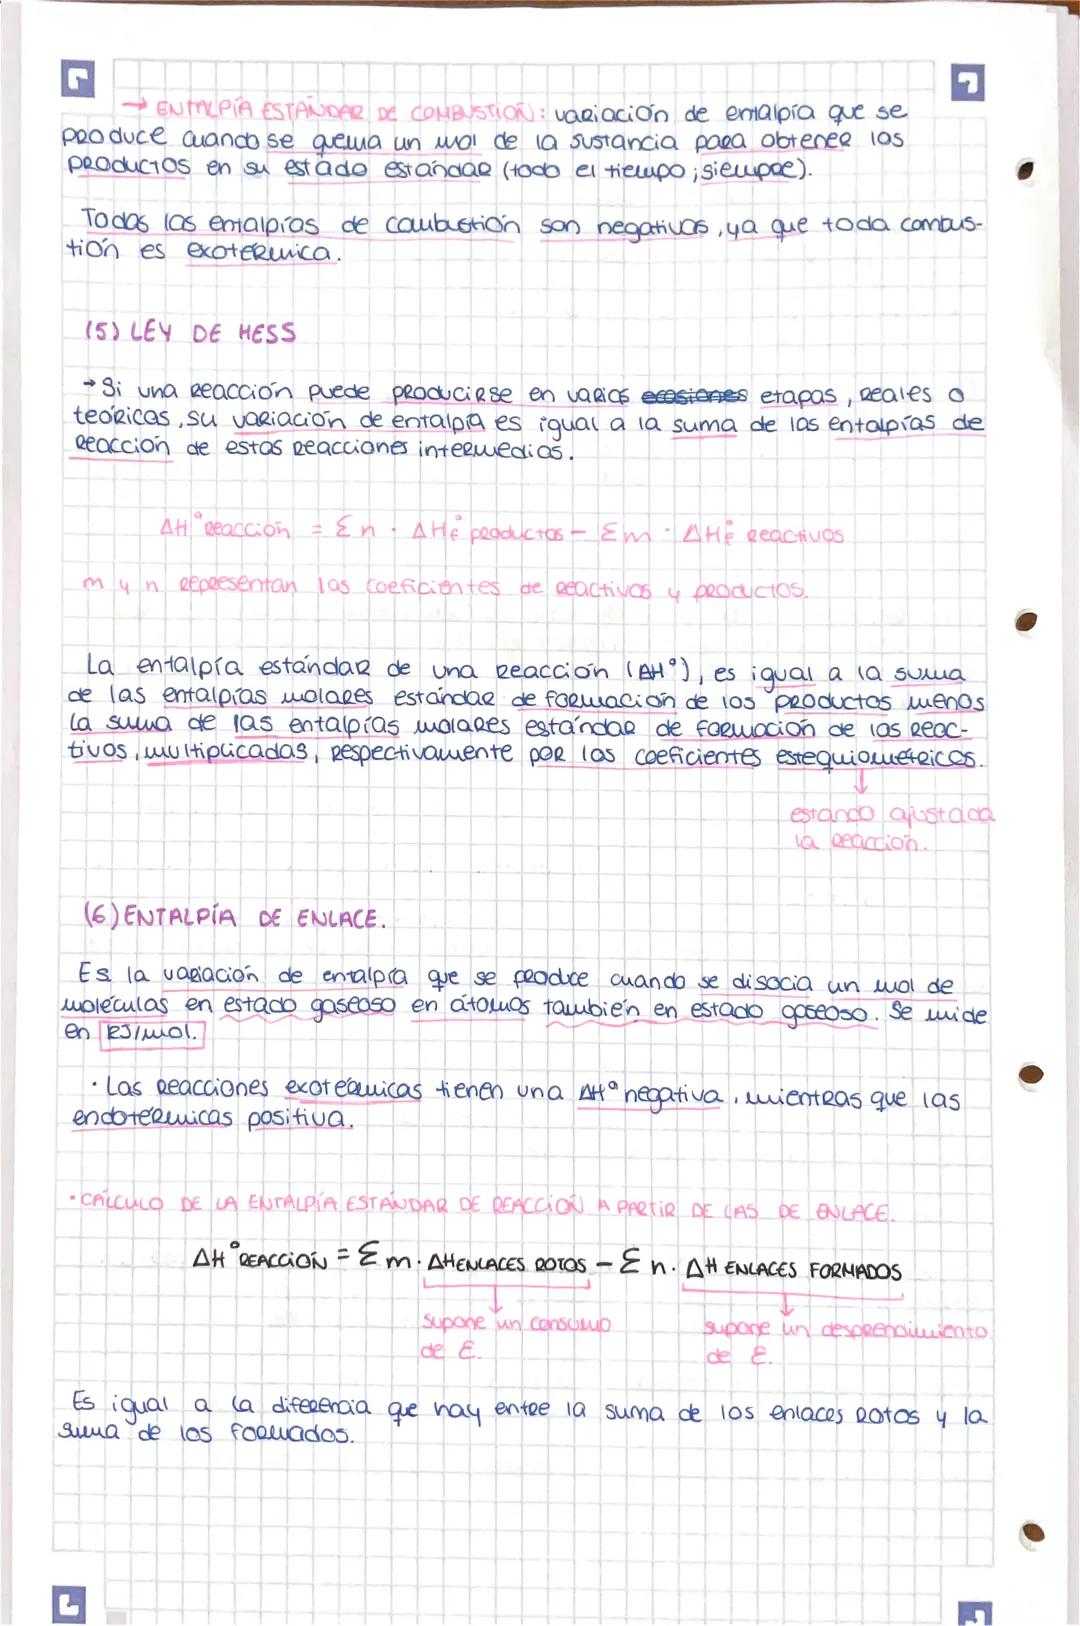 → ENTALPÍA ESTÁNDAR DE COMBUSTIÓN: variación de entalpía que se
produce cuando se quema un mol de la sustancia para obtener los
productos en su estado estándar (todo el tiempo; siempre).
Todas las entalpías de combustión son negativas, ya que toda combus-
tión es exotérmica.
(5) LEY DE HESS
→ Si una reacción puede producirse en varias ocasiones etapas, reales o
teóricas, su variación de entalpía es igual a la suma de las entalpías de
reacción de estas reacciones intermedias.
ΔH° reacción = Σn · ΔHf° productos - Σm · ΔHf° reactivos
m y n representan los coeficientes de reactivos y productos.
La entalpía estándar de una reacción (ΔH°), es igual a la suma
de las entalpías molares estándar de formación de los productos menos
la suma de las entalpías molares estándar de formación de los reac-
tivos, multiplicadas, respectivamente por los coeficientes estequiométricos.
↓
estando ajustada
la reacción.
(6) ENTALPÍA DE ENLACE.
Es la variación de entalpía que se produce cuando se disocia un mol de
moléculas en estado gaseoso en átomos también en estado gaseoso. Se mide
en KJ/mol.
· Las reacciones exotérmicas tienen una ΔH° negativa, mientras que las
endotérmicas positiva.
· CÁLCULO DE LA ENTALPÍA ESTÁNDAR DE REACCIÓN A PARTIR DE LAS DE ENLACE.
ΔH° REACCIÓN = Σm · ΔH ENLACES ROTOS - Σn · ΔH ENLACES FORMADOS
↓ ↓
supone un consumo supone un desprendimiento
de E. de E.
Es igual a la diferencia que hay entre la suma de los enlaces rotos y la
suma de los formados.